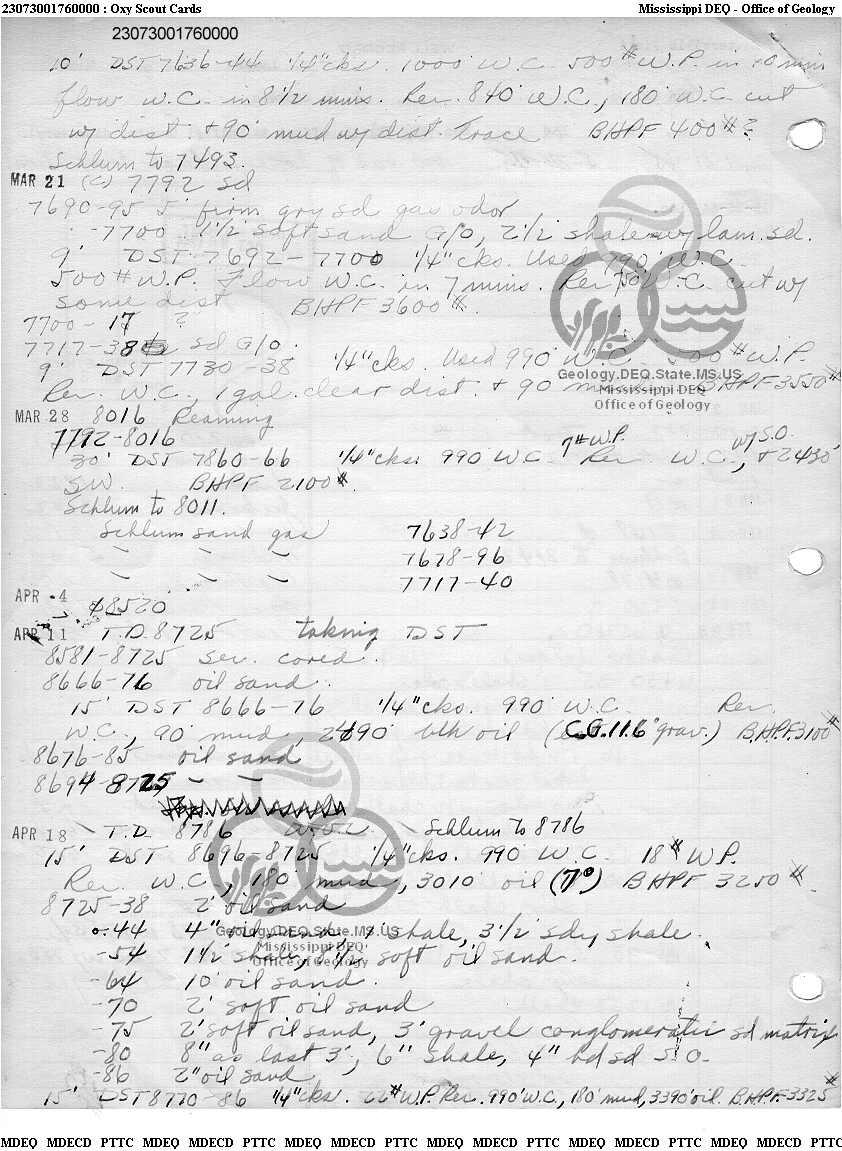 23073001760000 : Oxy Scout Cards
Mississippi DEQ - Office of Geology
23073001760000
10' DST 7636-44 1/4"cks. 1000' W.C. 500# W.P. in 10 min
flow W.C. in 8 1/2 mins. Rev. 840' W.C., 180' W.C. cut
w/ dist. + 90' mud w/ dist. Trace BHPF 400#?
Schlum to 7493.
MAR 21 (C) 7792 sd
7690-95 5' firm gry sd gas odor
-7700 1 1/2' soft sand G/O, 2 1/2' shale w/ lam. sd.
9' DST 7692-7700 1/4"cks. Used 990' W.C.
500# W.P. Flow W.C. in 7 mins. Rev. W.C. cut w/
some dist BHPF 3600#.
7700-17 ?
7717-38 sd G/O.
9' DST 7730-38 1/4"cks. Used 990' W.C. 500# W.P.
Rev. W.C., 1 gal. clear dist. + 90' mud. BHPF 3550#
Geology.DEQ.State.MS.US
Mississippi DEQ
Office of Geology
MAR 28 8016 Reaming
7792-8016
30' DST 7860-66 1/4"cks. 990' W.C. 7# W.P. Rev. W.C., w/ S.O. + 2430'
SW. BHPF 2100#.
Schlum to 8011.
Schlum sand gas 7638-42
- - - 7678-96
- - - 7717-40
APR 4 8520
APR 11 T.D. 8725 taking DST
8581-8725 sev. cored.
8666-76 oil sand.
15' DST 8666-76 1/4"cks. 990' W.C. Rev.
W.C., 90' mud, blk oil (C.G. 11.6° grav.) B.H.P.F. 3100#
8676-85 oil sand
8694-8725 - -
APR 18 T.D. 8786 Schlum to 8786
15' DST 8696-8725 1/4"cks. 990' W.C. 18# W.P.
Rev. W.C., 180' mud, 3010' oil (7°) BHPF 3250#.
8725-38 2' oil sand
-44 4" oil sand, 1' shale, 3 1/2' sdy shale.
Geology.DEQ.State.MS.US
Mississippi DEQ
Office of Geology
-54 1 1/2' shale, soft oil sand.
-64 10' oil sand.
-70 2' soft oil sand
-75 2' soft oil sand, 3' gravel conglomeratic sd matrix
-80 8" as last 3', 6" shale, 4" hd sd S.O.
-86 2" oil sand
15' DST 8770-86 1/4"cks. 22# W.P. Rev. 990' W.C., 180' mud, 3390' oil. B.H.P.F. 3325#
MDEQ MDECD PTTC MDEQ MDECD PTTC MDEQ MDECD PTTC MDEQ MDECD PTTC MDEQ MDECD PTTC MDEQ MDECD PTTC